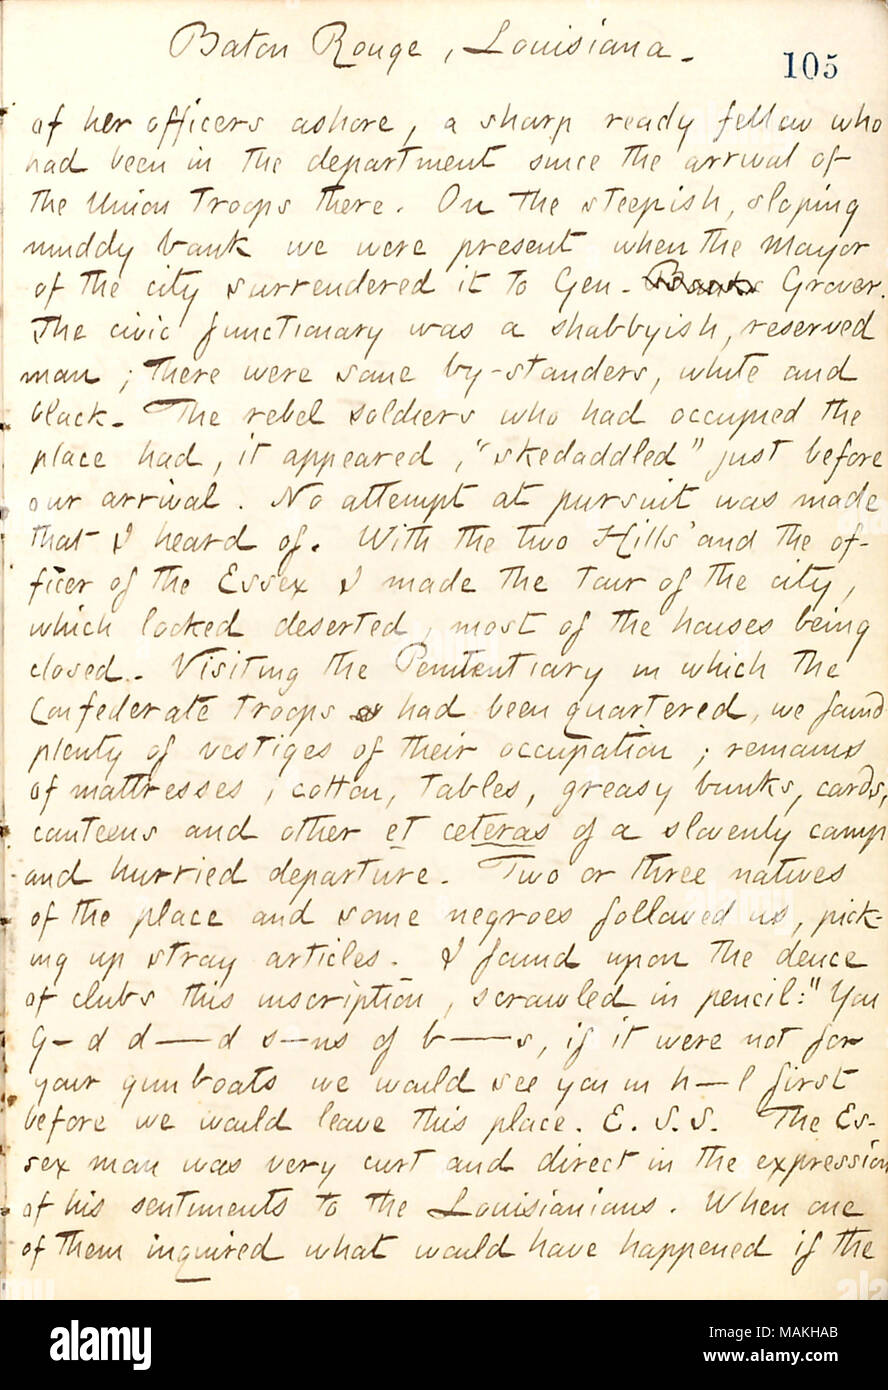 Baton Rouge, Louisiana.
105
of her officers ashore, a sharp ready fellow who
had been in the department since the arrival of
the Union troops there. On the steepish, sloping
muddy bank we were present when the Mayor
of the city surrendered it to Gen. Banks Grover.
The civic functionary was a shabbyish, reserved
man; there were some by-standers, white and
black. The rebel soldiers who had occupied the
place had, it appeared, "skedaddled" just before
our arrival. No attempt at pursuit was made
that I heard of. With the two Hills' and the of-
ficer of the Essex I made the tour of the city,
which looked deserted, most of the houses being
closed. Visiting the Penitentiary in which the
Confederate troops had been quartered, we found
plenty of vestiges of their occupation; remains
of mattresses, cotton, tables, greasy bunks, cards,
canteens and other et ceteras of a slovenly camp
and hurried departure. Two or three natives
of the place and some negroes followed us, pick-
ing up stray articles. I found upon the deuce
of clubs this inscription, scrawled in pencil: "You
G-d d—d s—ns of b—s, if it were not for
your gunboats we would see you in h—l first
before we would leave this place. E. S. S. The Es-
sex man was very curt and direct in the expression
of his sentiments to the Louisianians. When one
of them inquired what would have happened if the
alamy
Image ID: MAKHAB
www.alamy.com